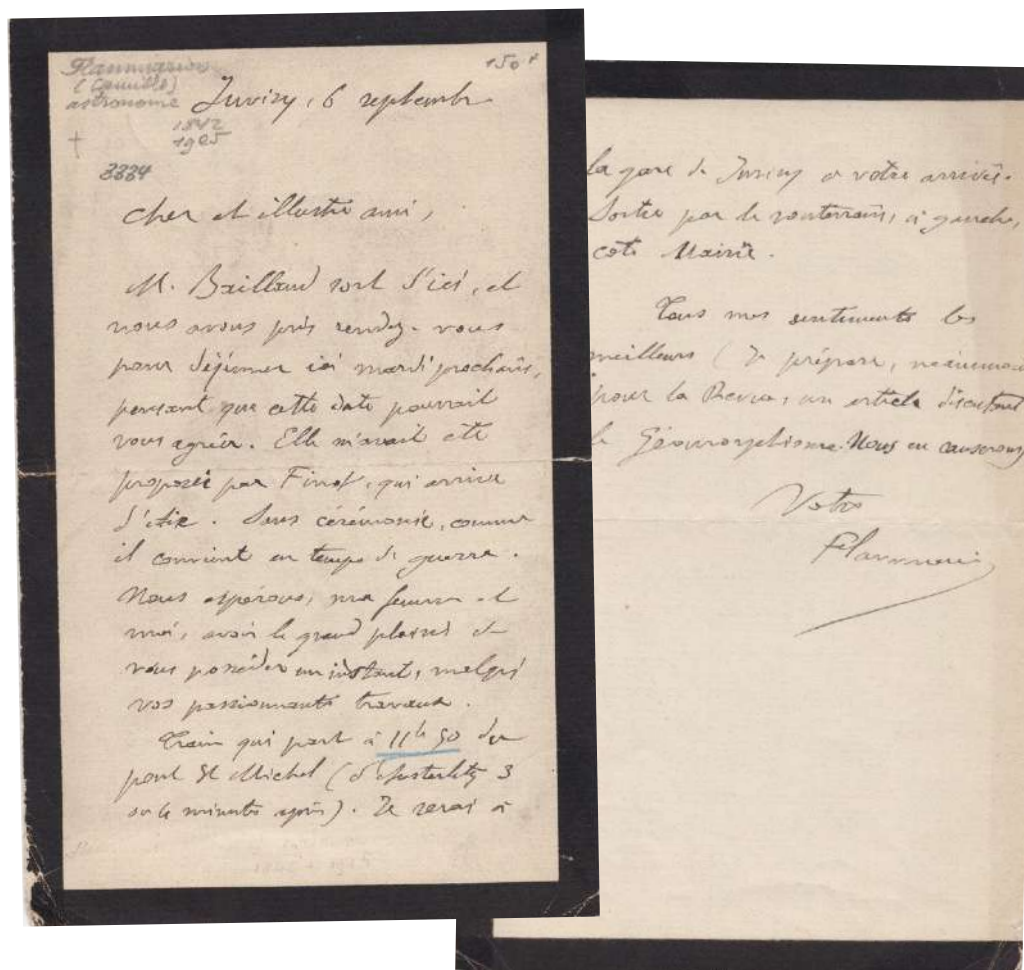 Flammarion
(Camille)
astronome
1842
1925
3334
150 f
Juvisy, 6 septembre
Cher et illustre ami,
M. Baillaud sort d'ici, et
nous avons pris rendez-vous
pour déjeuner ici mardi prochain,
pensant que cette date pourrait
vous agréer. Elle m'avait été
proposée par Finot, qui arrive
d'Aix. Sans cérémonie, comme
il convient en temps de guerre.
Nous espérons, ma femme et
moi, avoir le grand plaisir de
vous posséder un instant, malgré
vos passionnants travaux.
Train qui part à 11h 50 du
pont St Michel (d'Austerlitz 3
ou 4 minutes après). Je serai à
la gare de Juvisy à votre arrivée.
Sortie par le souterrain, à gauche,
côté Mairie.
Tous mes sentiments les
meilleurs (Je prépare,
pour la Revue, un article discutant
le Géomorphisme. Nous en causerons
Votre
Flammarion